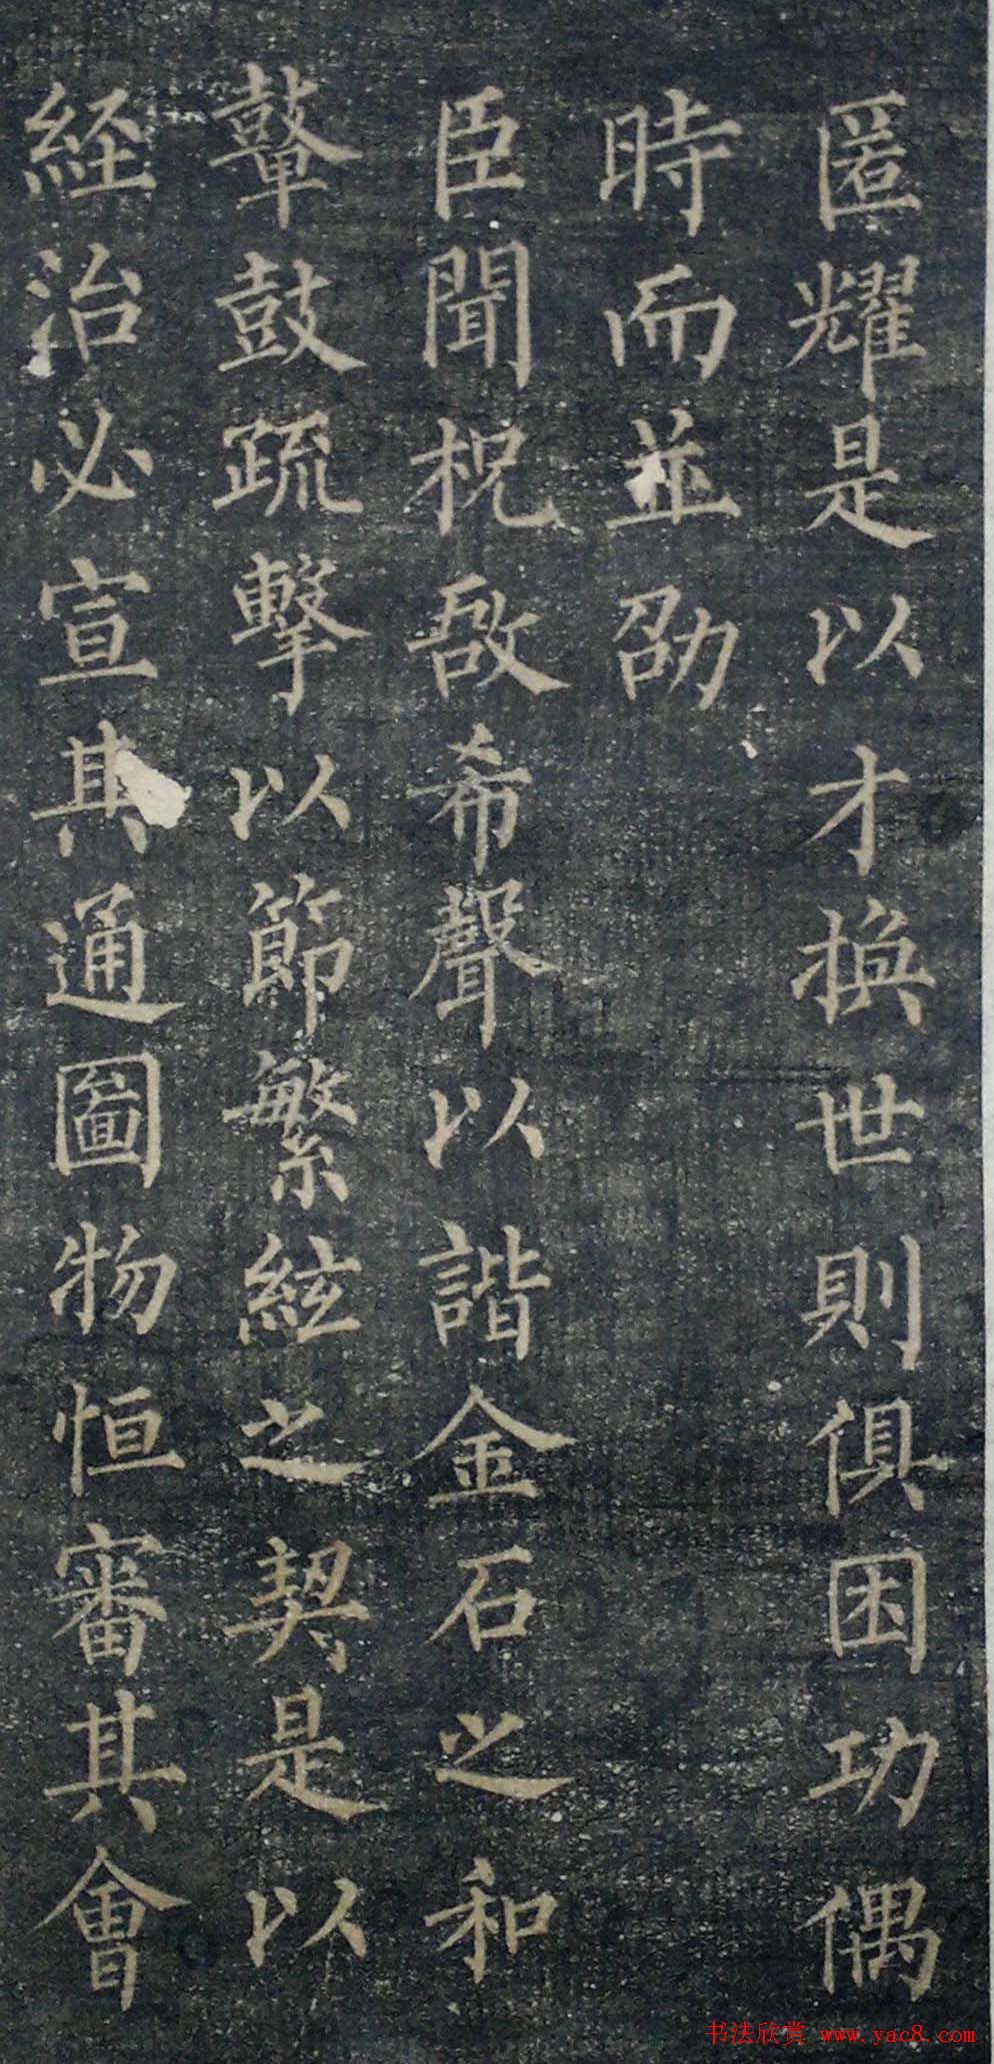 匿耀是以才換世則俱困功偶
時而並劭
臣聞柷敔希聲以諧金石之和
鼙鼓疏擊以節繁絃之契是以
経治必宣其通圖物恒審其會
书法欣赏 www.yac8.com